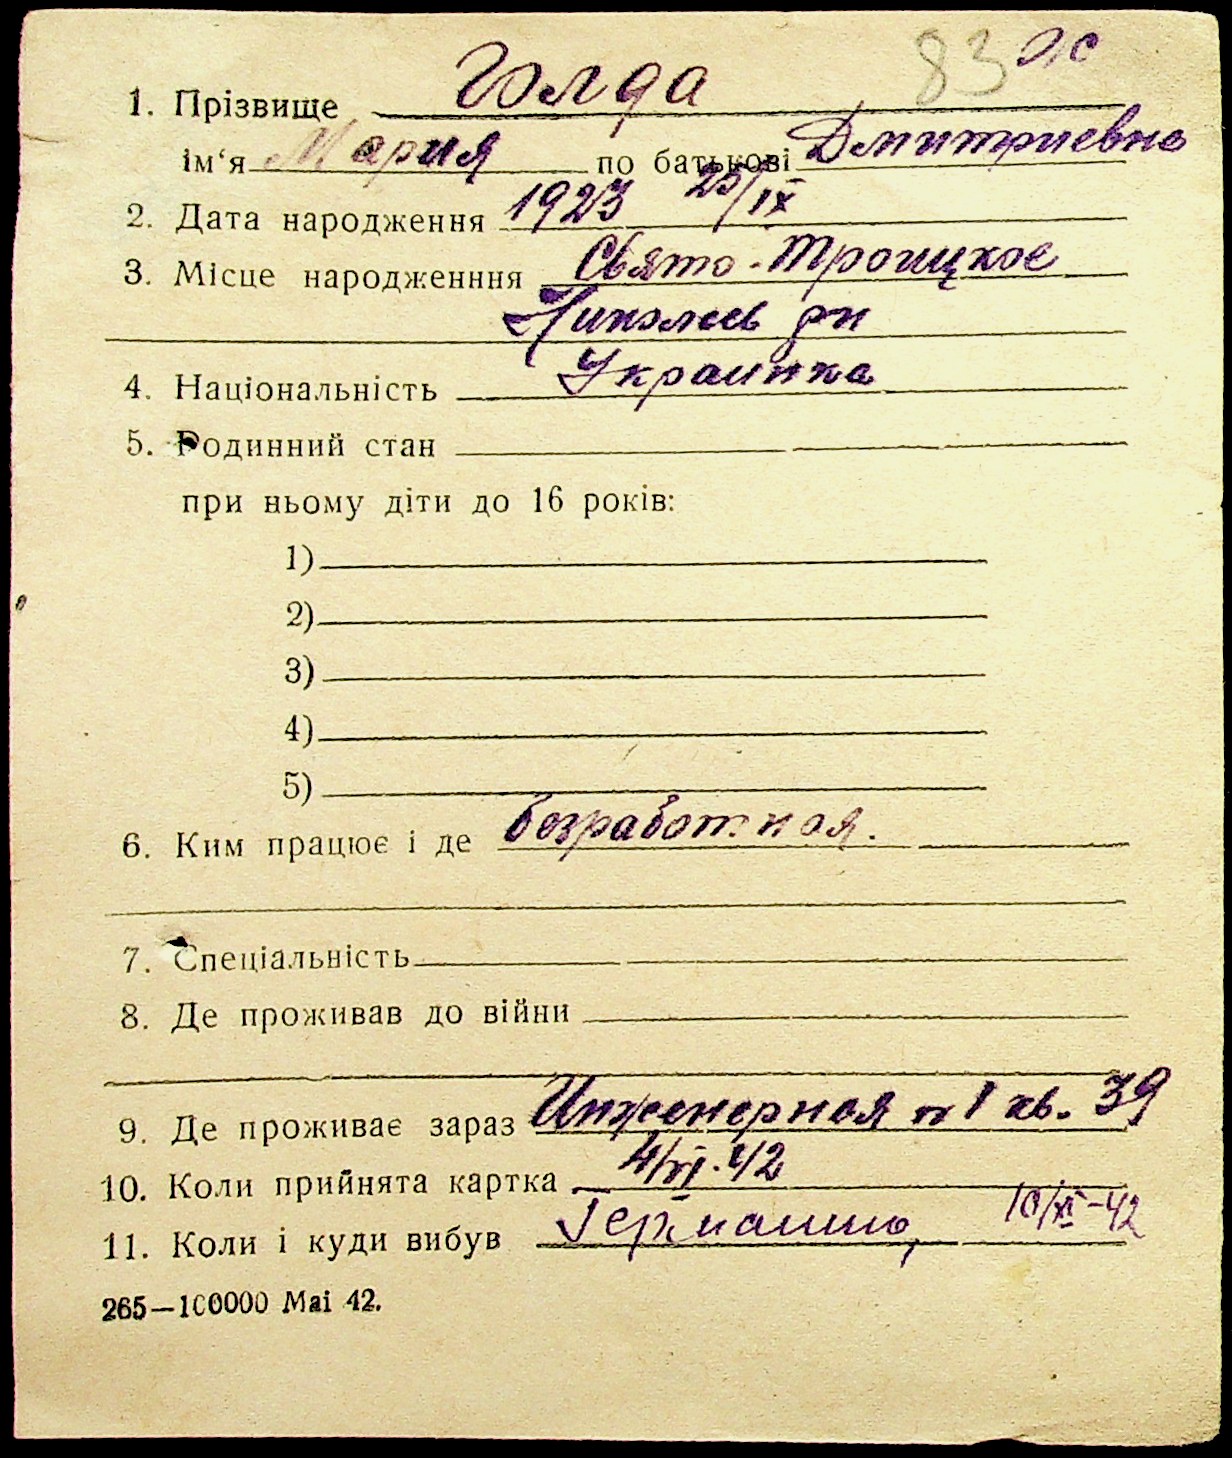 83 Яс
1. Прізвище Голда
ім‘я Мария по батькові Дмитриевна
2. Дата народження 1923 25/IX
3. Місце народженння Свято-Троицкое
Николаев рн
4. Національність Украинка
5. Родинний стан
при ньому діти до 16 років:
1)
2)
3)
4)
5)
6. Ким працює і де безработная.
7. Спеціальність
8. Де проживав до війни
9. Де проживає зараз Инженерная n 1 кв. 39
10. Коли прийнята картка 4/VI.42
11. Коли і куди вибув Германию, 10/XI-42
265—100000 Mai 42.